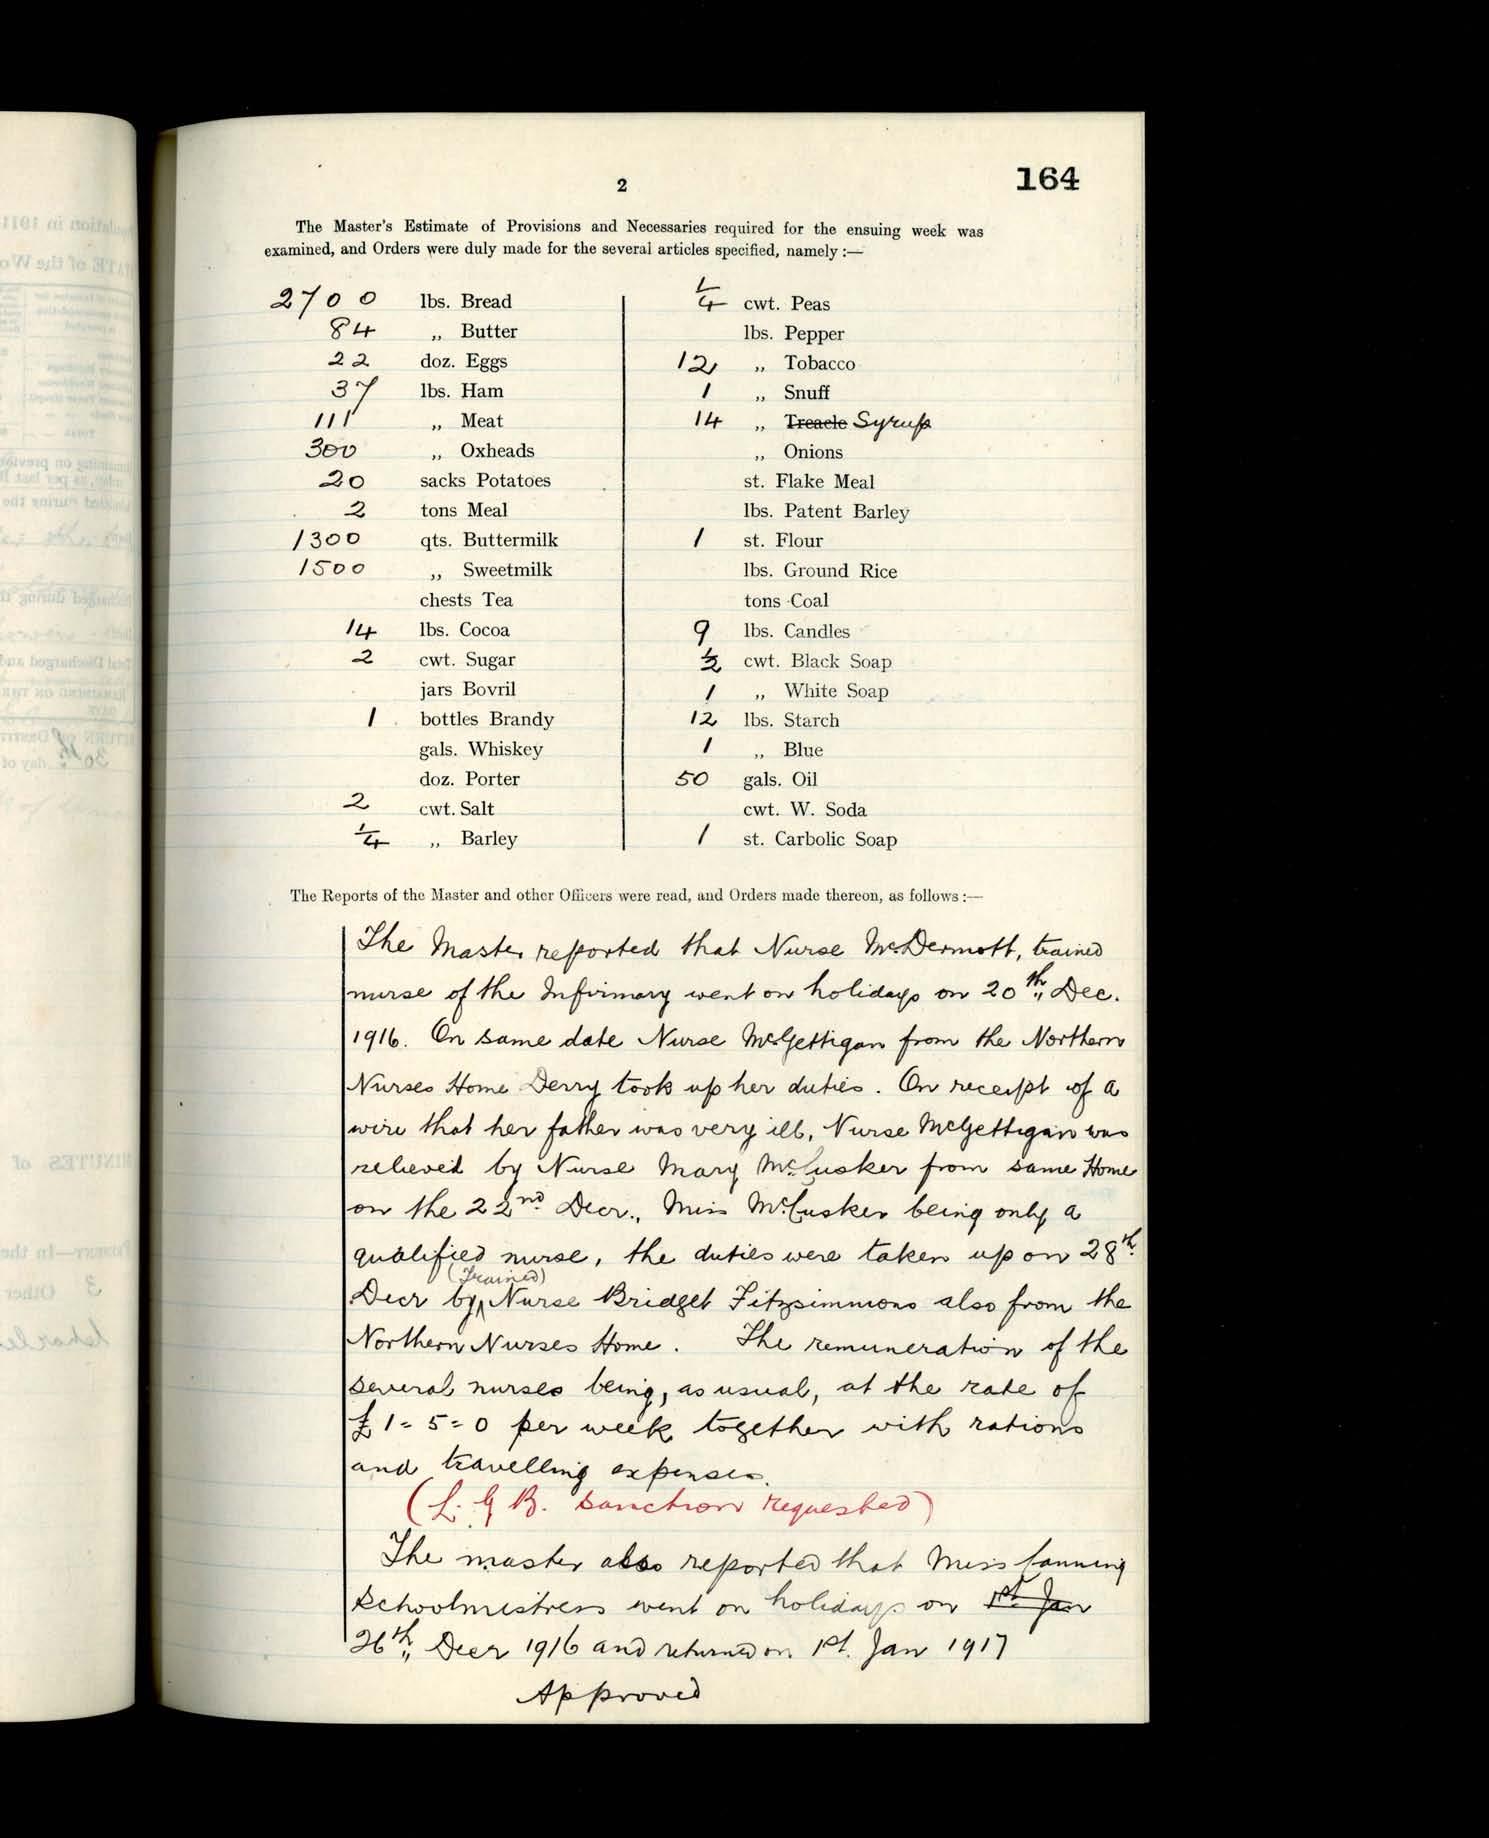 2
164
The Master's Estimate of Provisions and Necessaries required for the ensuing week was
examined, and Orders were duly made for the several articles specified, namely :—
2700 lbs. Bread
84 „ Butter
22 doz. Eggs
37 lbs. Ham
111 „ Meat
300 „ Oxheads
20 sacks Potatoes
2 tons Meal
1300 qts. Buttermilk
1500 „ Sweetmilk
chests Tea
14 lbs. Cocoa
2 cwt. Sugar
jars Bovril
1 bottles Brandy
gals. Whiskey
doz. Porter
2 cwt. Salt
1/4 „ Barley
1/4 cwt. Peas
lbs. Pepper
12 „ Tobacco
1 „ Snuff
14 „ Treacle Syrup
„ Onions
st. Flake Meal
lbs. Patent Barley
1 st. Flour
lbs. Ground Rice
tons Coal
9 lbs. Candles
1/2 cwt. Black Soap
1 „ White Soap
12 lbs. Starch
1 „ Blue
50 gals. Oil
cwt. W. Soda
1 st. Carbolic Soap
The Reports of the Master and other Officers were read, and Orders made thereon, as follows :—
The Master reported that Nurse McDermott, trained
nurse of the Infirmary went on holidays on 20th Dec.
1916. On same date Nurse McGettigan from the Northern
Nurses Home Derry took up her duties. On receipt of a
wire that her father was very ill, Nurse McGettigan was
relieved by Nurse Mary McCusker from same Home
on the 22nd Decr., Miss McCusker being only a
qualified nurse, the duties were taken up on 28th
(Trained)
Decr by Nurse Bridget Fitzsimmons also from the
Northern Nurses Home. The remuneration of the
several nurses being, as usual, at the rate of
£1=5=0 per week together with rations
and travelling expenses.
(L. G B. sanction requested)
The master also reported that Miss Canning
Schoolmistress went on holidays on 1st Jan
26th Decr 1916 and returned on 1st. Jan 1917
Approved